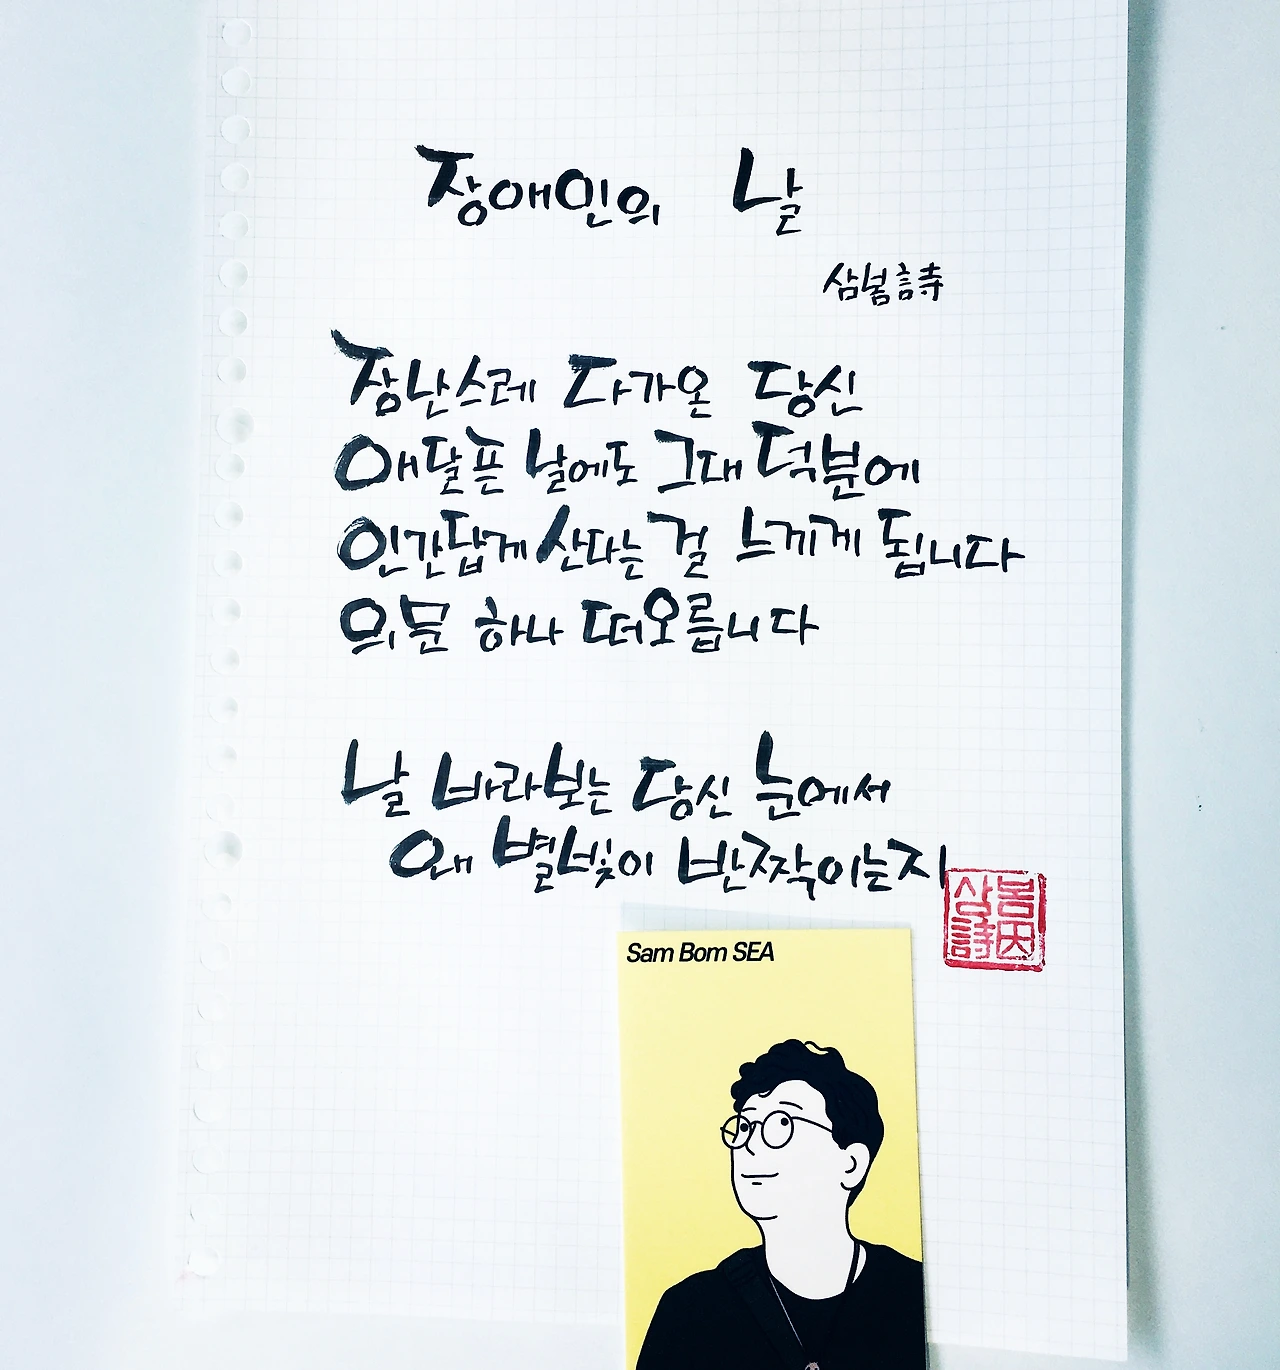 장애인의 날
삼봄詩寺
장난스레 다가온 당신
애달픈 날에도 그대 덕분에
인간답게 산다는 걸 느끼게 됩니다
의문 하나 떠오릅니다
날 바라보는 당신 눈에서
왜 별빛이 반짝이는지
삼봄
詩因
Sam Bom SEA